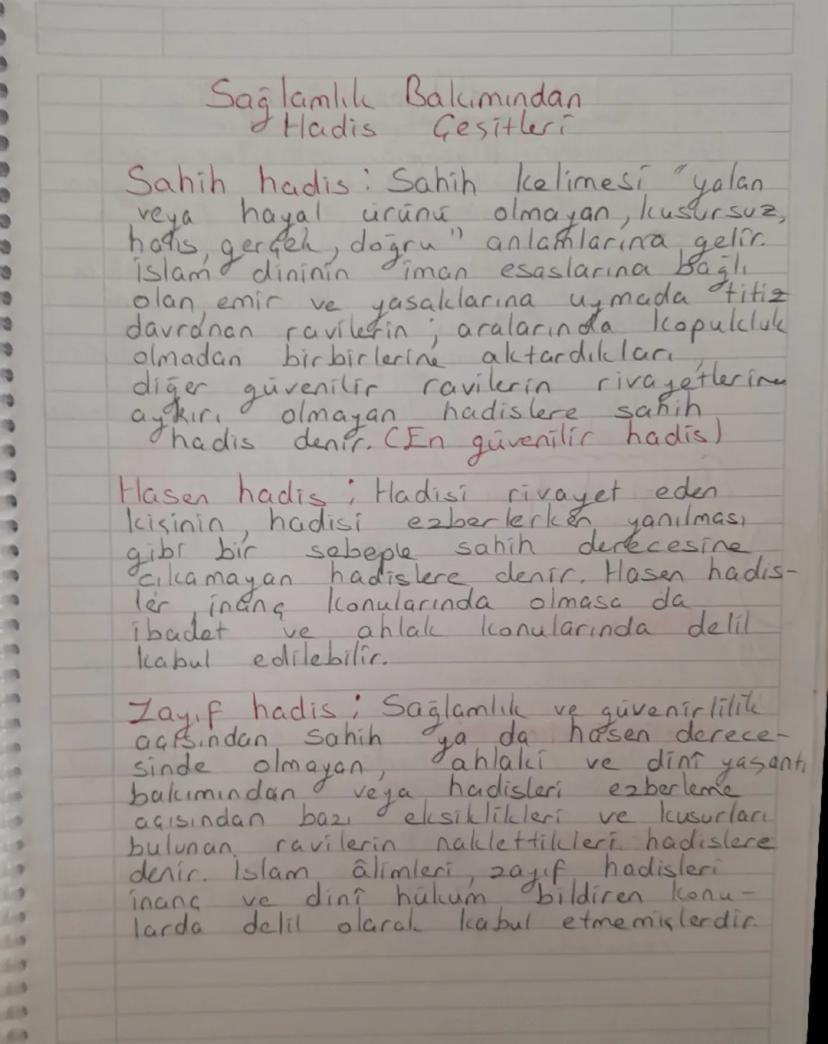 Sağlamlık Bakımından
Hadis Çeşitleri
Sahih hadis : Sahih kelimesi "yalan
veya hayal ürünü olmayan, kusursuz,
halis, gerçek, doğru" anlamlarına gelir.
İslam dininin iman esaslarına bağlı
olan, emir ve yasaklarına uymada titiz
davranan ravilerin ; aralarında kopukluk
olmadan birbirlerine aktardıkları,
diğer güvenilir ravilerin rivayetlerine
aykırı olmayan hadislere sahih
hadis denir. (En güvenilir hadis)
Hasen hadis ; Hadisi rivayet eden
kişinin, hadisi ezberlerken yanılması
gibi bir sebeple sahih derecesine
çıkamayan hadislere denir. Hasen hadis-
ler, inanç konularında olmasa da
ibadet ve ahlak konularında delil
kabul edilebilir.
Zayıf hadis ; Sağlamlık ve güvenirlilik
açısından sahih ya da hasen derece-
sinde olmayan, ahlaki ve dinî yaşantı
bakımından veya hadisleri ezberleme
açısından bazı eksiklikleri ve kusurları
bulunan ravilerin naklettikleri hadislere
denir. İslam âlimleri, zayıf hadisleri
inanç ve dinî hüküm bildiren konu-
larda delil olarak kabul etmemişlerdir.